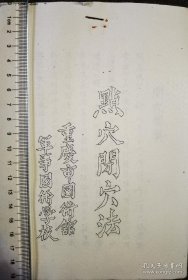 點穴閉穴法
重慶市國術館
軍事國術學校